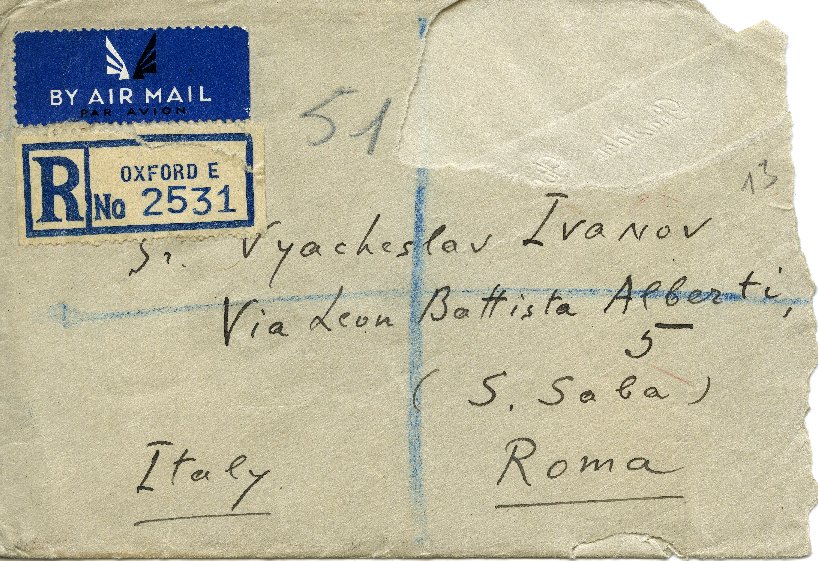 BY AIR MAIL
PAR AVION
51
R
OXFORD E
No 2531
13
Sr. Vyacheslav Ivanov
Via Leon Battista Alberti,
5
(S. Saba)
Italy
Roma